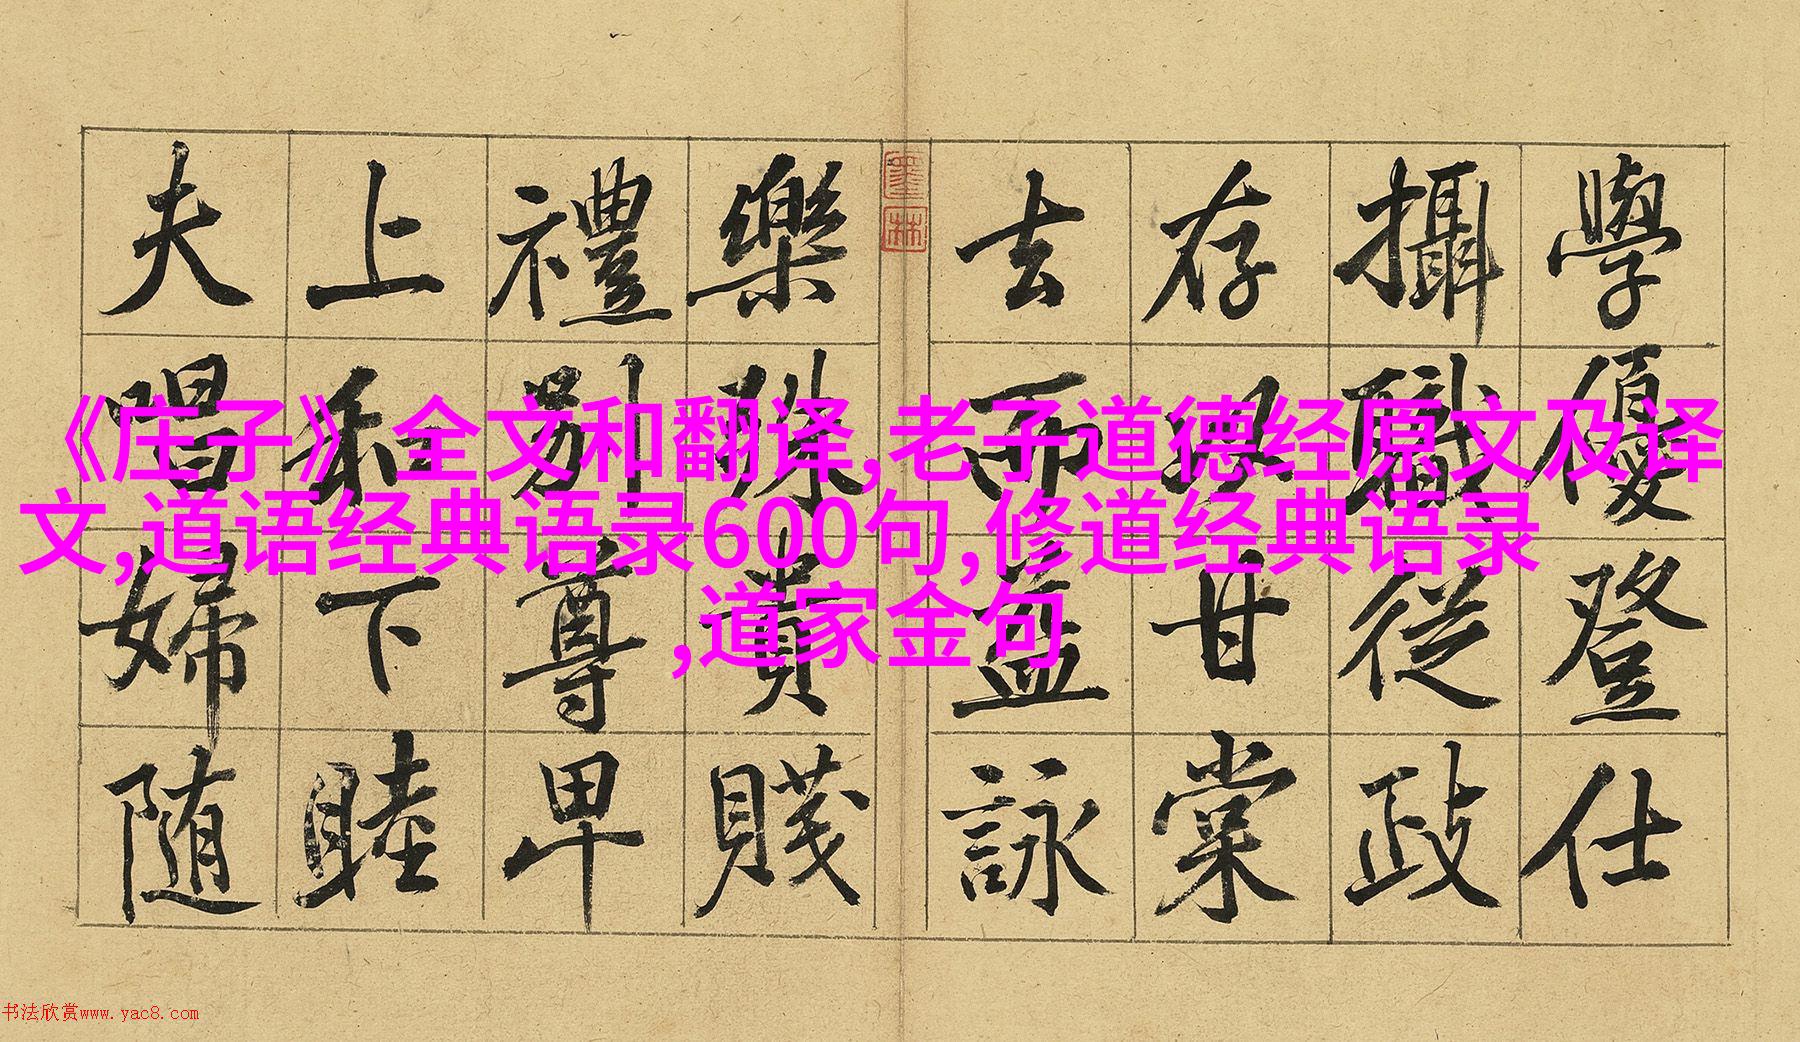 《庄子》全文和翻译,老子道德经原文及译
文,道语经典语录600句,修道经典语录
,道家金句
學優登仕
攝職從政
存以甘棠
去而益詠
樂殊貴賤
禮別尊卑
上和下睦
夫唱婦随
墨林
书法欣赏www.yac8.com